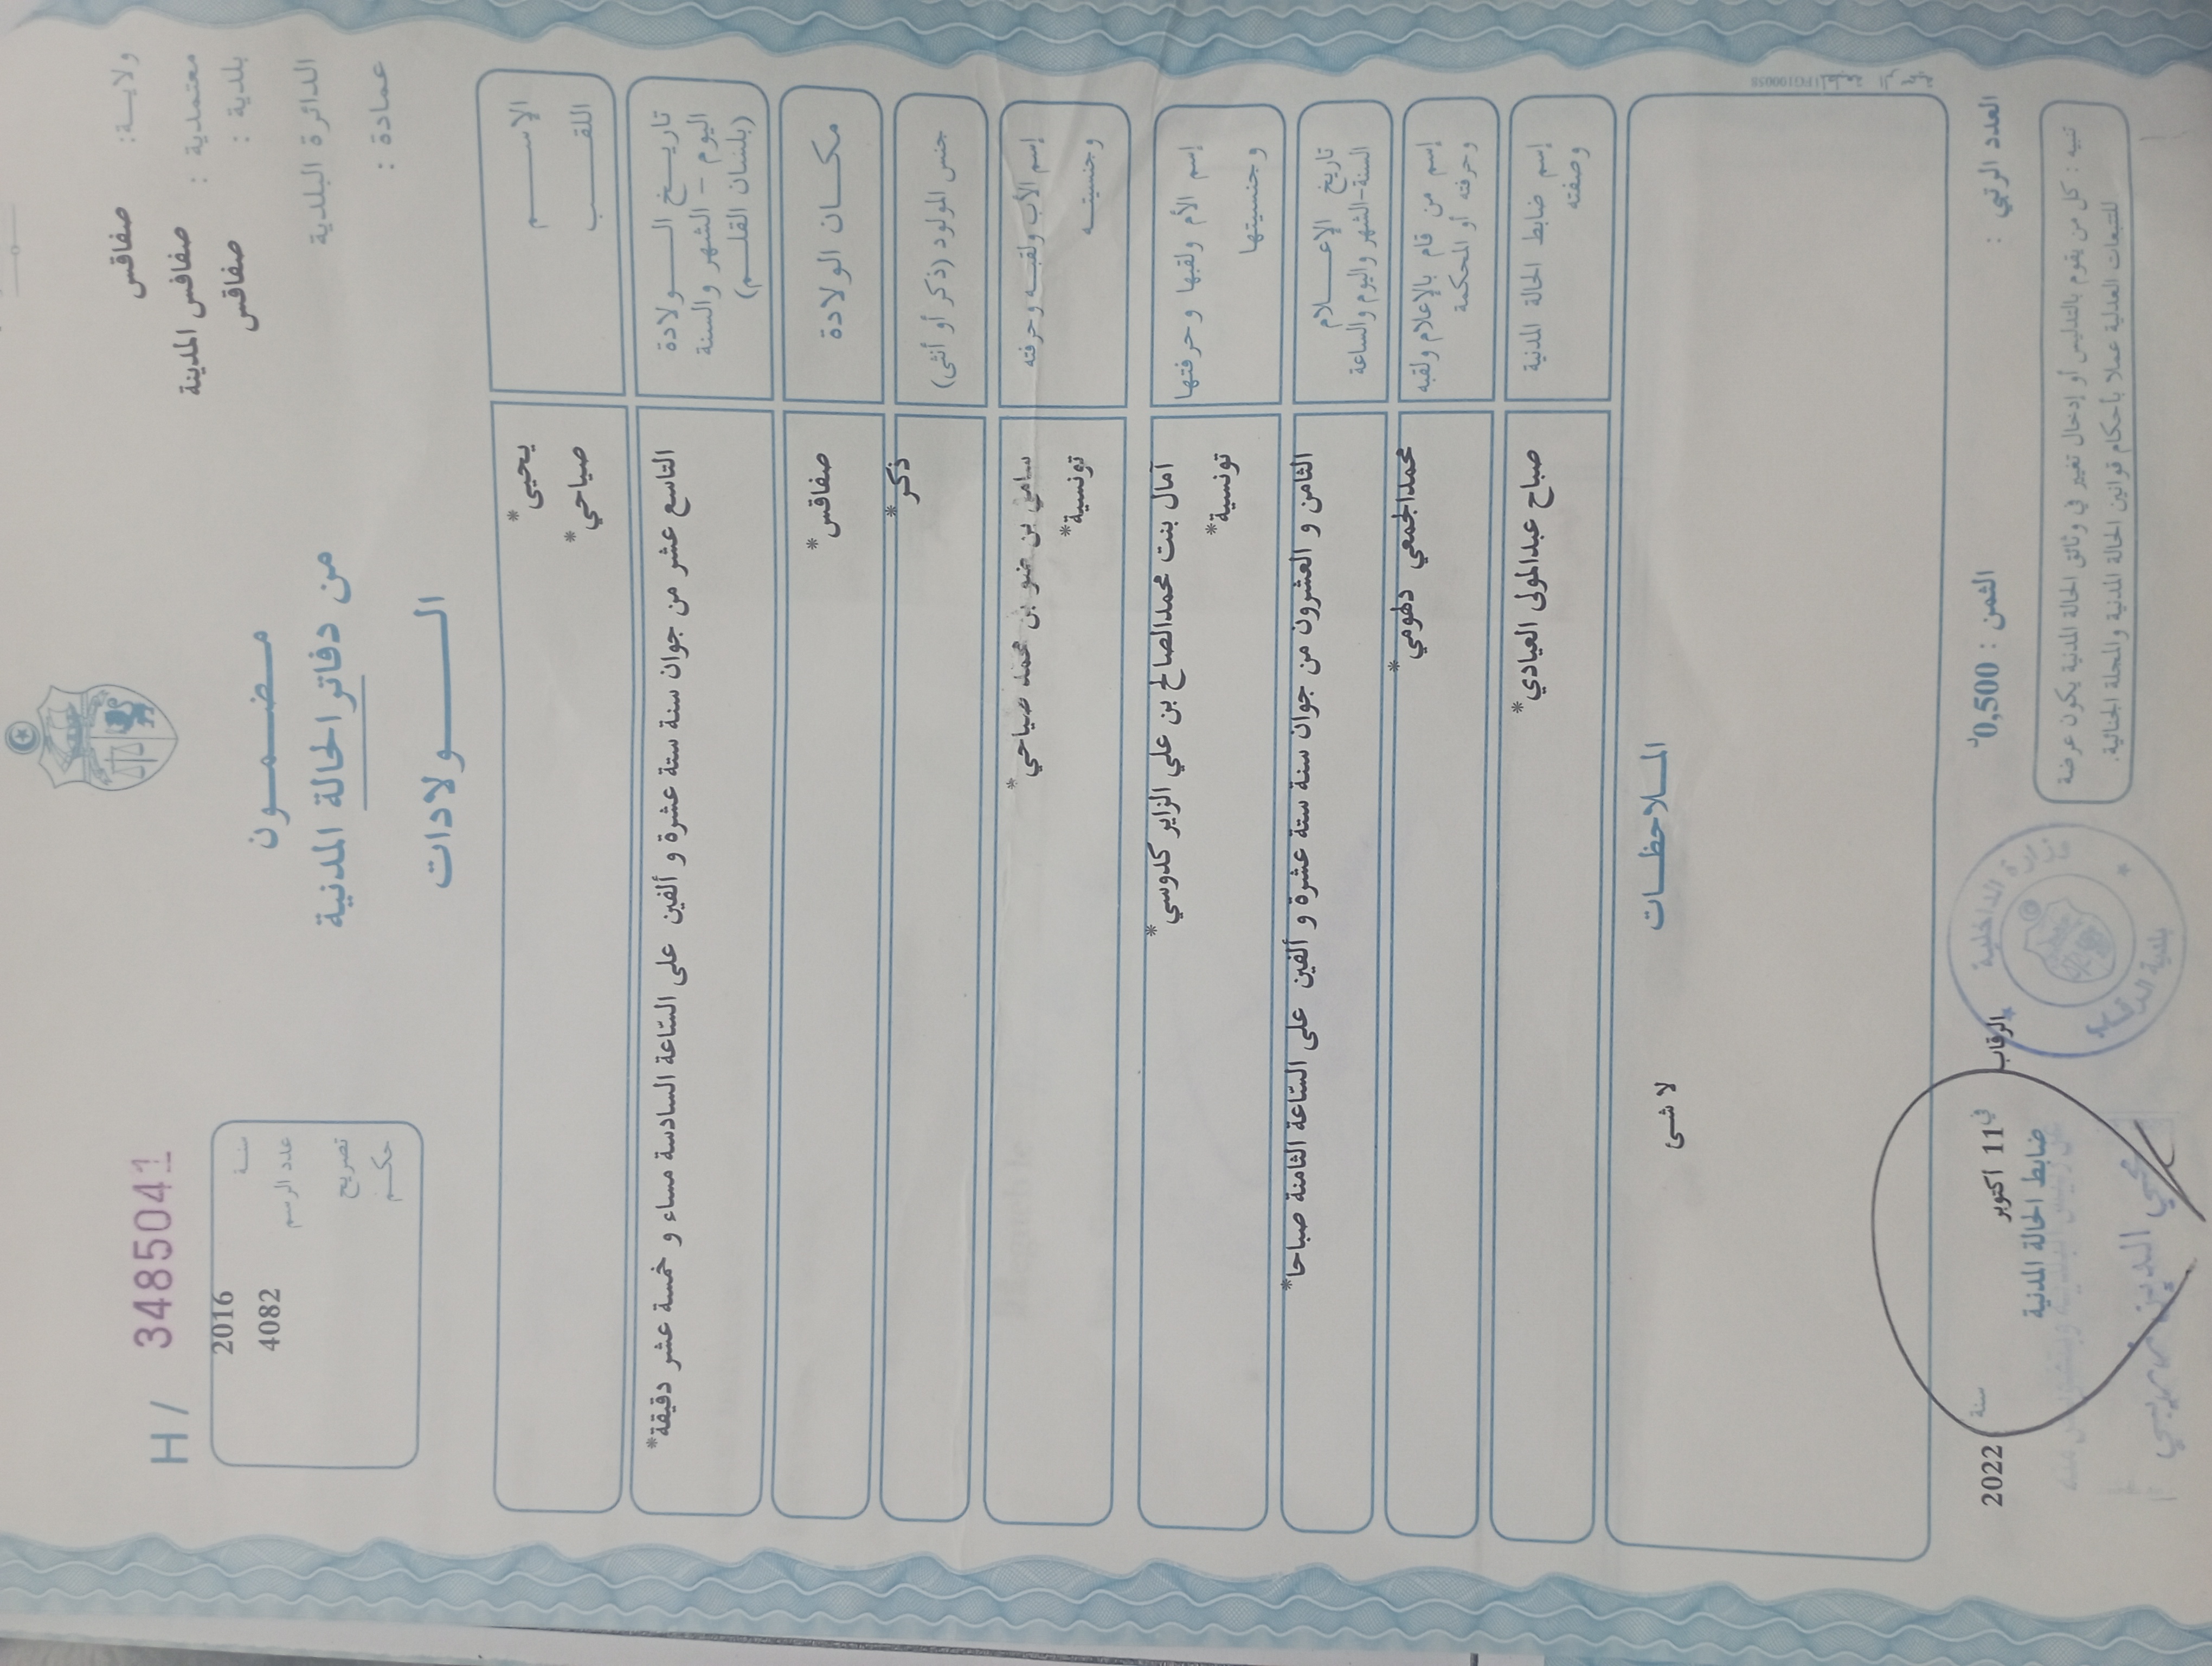 ولايـــة: صفاقس
معتمدية : صفاقس المدينة
بلدية : صفاقس
الدائرة البلدية
عمادة :
مضـــمـــون
من دفاتر الحالة المدنية
الـــــولادات
H / 3485041
سنة 2016
عدد الرسم 4082
تصريح
حكم
الإســـــم
يحيى*
اللقـــــب
صياحي*
تاريـــخ الـــــولادة
اليوم - الشهر والسنة
(بلسان القلـــم)
التاسع عشر من جوان سنة ستة عشرة و ألفين على السّاعة السادسة مساء و خمسة عشر دقيقة*
مكـــان الولادة
صفاقس*
جنس المولود (ذكر أو أنثى)
ذكر*
إسم الأب ولقبـــه وحرفته
وجنسيتـــه
سامي بن ضو بن محمد صياحي*
تونسية*
إسم الأم ولقبها وحرفتها
وجنسيتها
آمال بنت محمدالصالح بن علي الزاير كدوسي*
تونسية*
تاريخ الإعـــــلام
السنة-الشهر واليوم والساعة
الثامن و العشرون من جوان سنة ستة عشرة و ألفين على السّاعة الثامنة صباحا*
إسم من قام بالإعلام ولقبه
وحرفته أو المحكمة
محمدالجمعي دهومي*
إسم ضابط الحالة المدنية
وصفته
صباح عبدالمولى العيادي*
المـــلاحظـــات
لا شئ
العدد الرتبي :
الثمن : 0,500د
الرقاب في 11 اكتوبر سنة 2022
ضابط الحالة المدنية
تنبيه : كل من يقوم بالتدليس أو إدخال تغيير في وثائق الحالة المدنية يكون عرضة
للتتبعات العدلية عملا بأحكام قوانين الحالة المدنية والمجلة الجنائية.
وزارة الداخلية
بلدية الرقاب